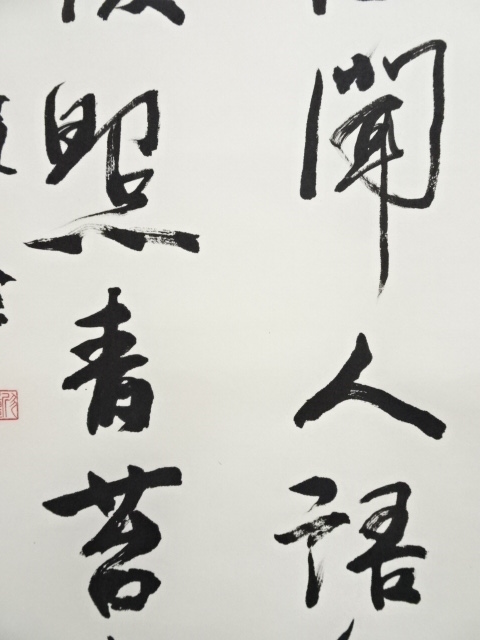 聞人語
照青苔